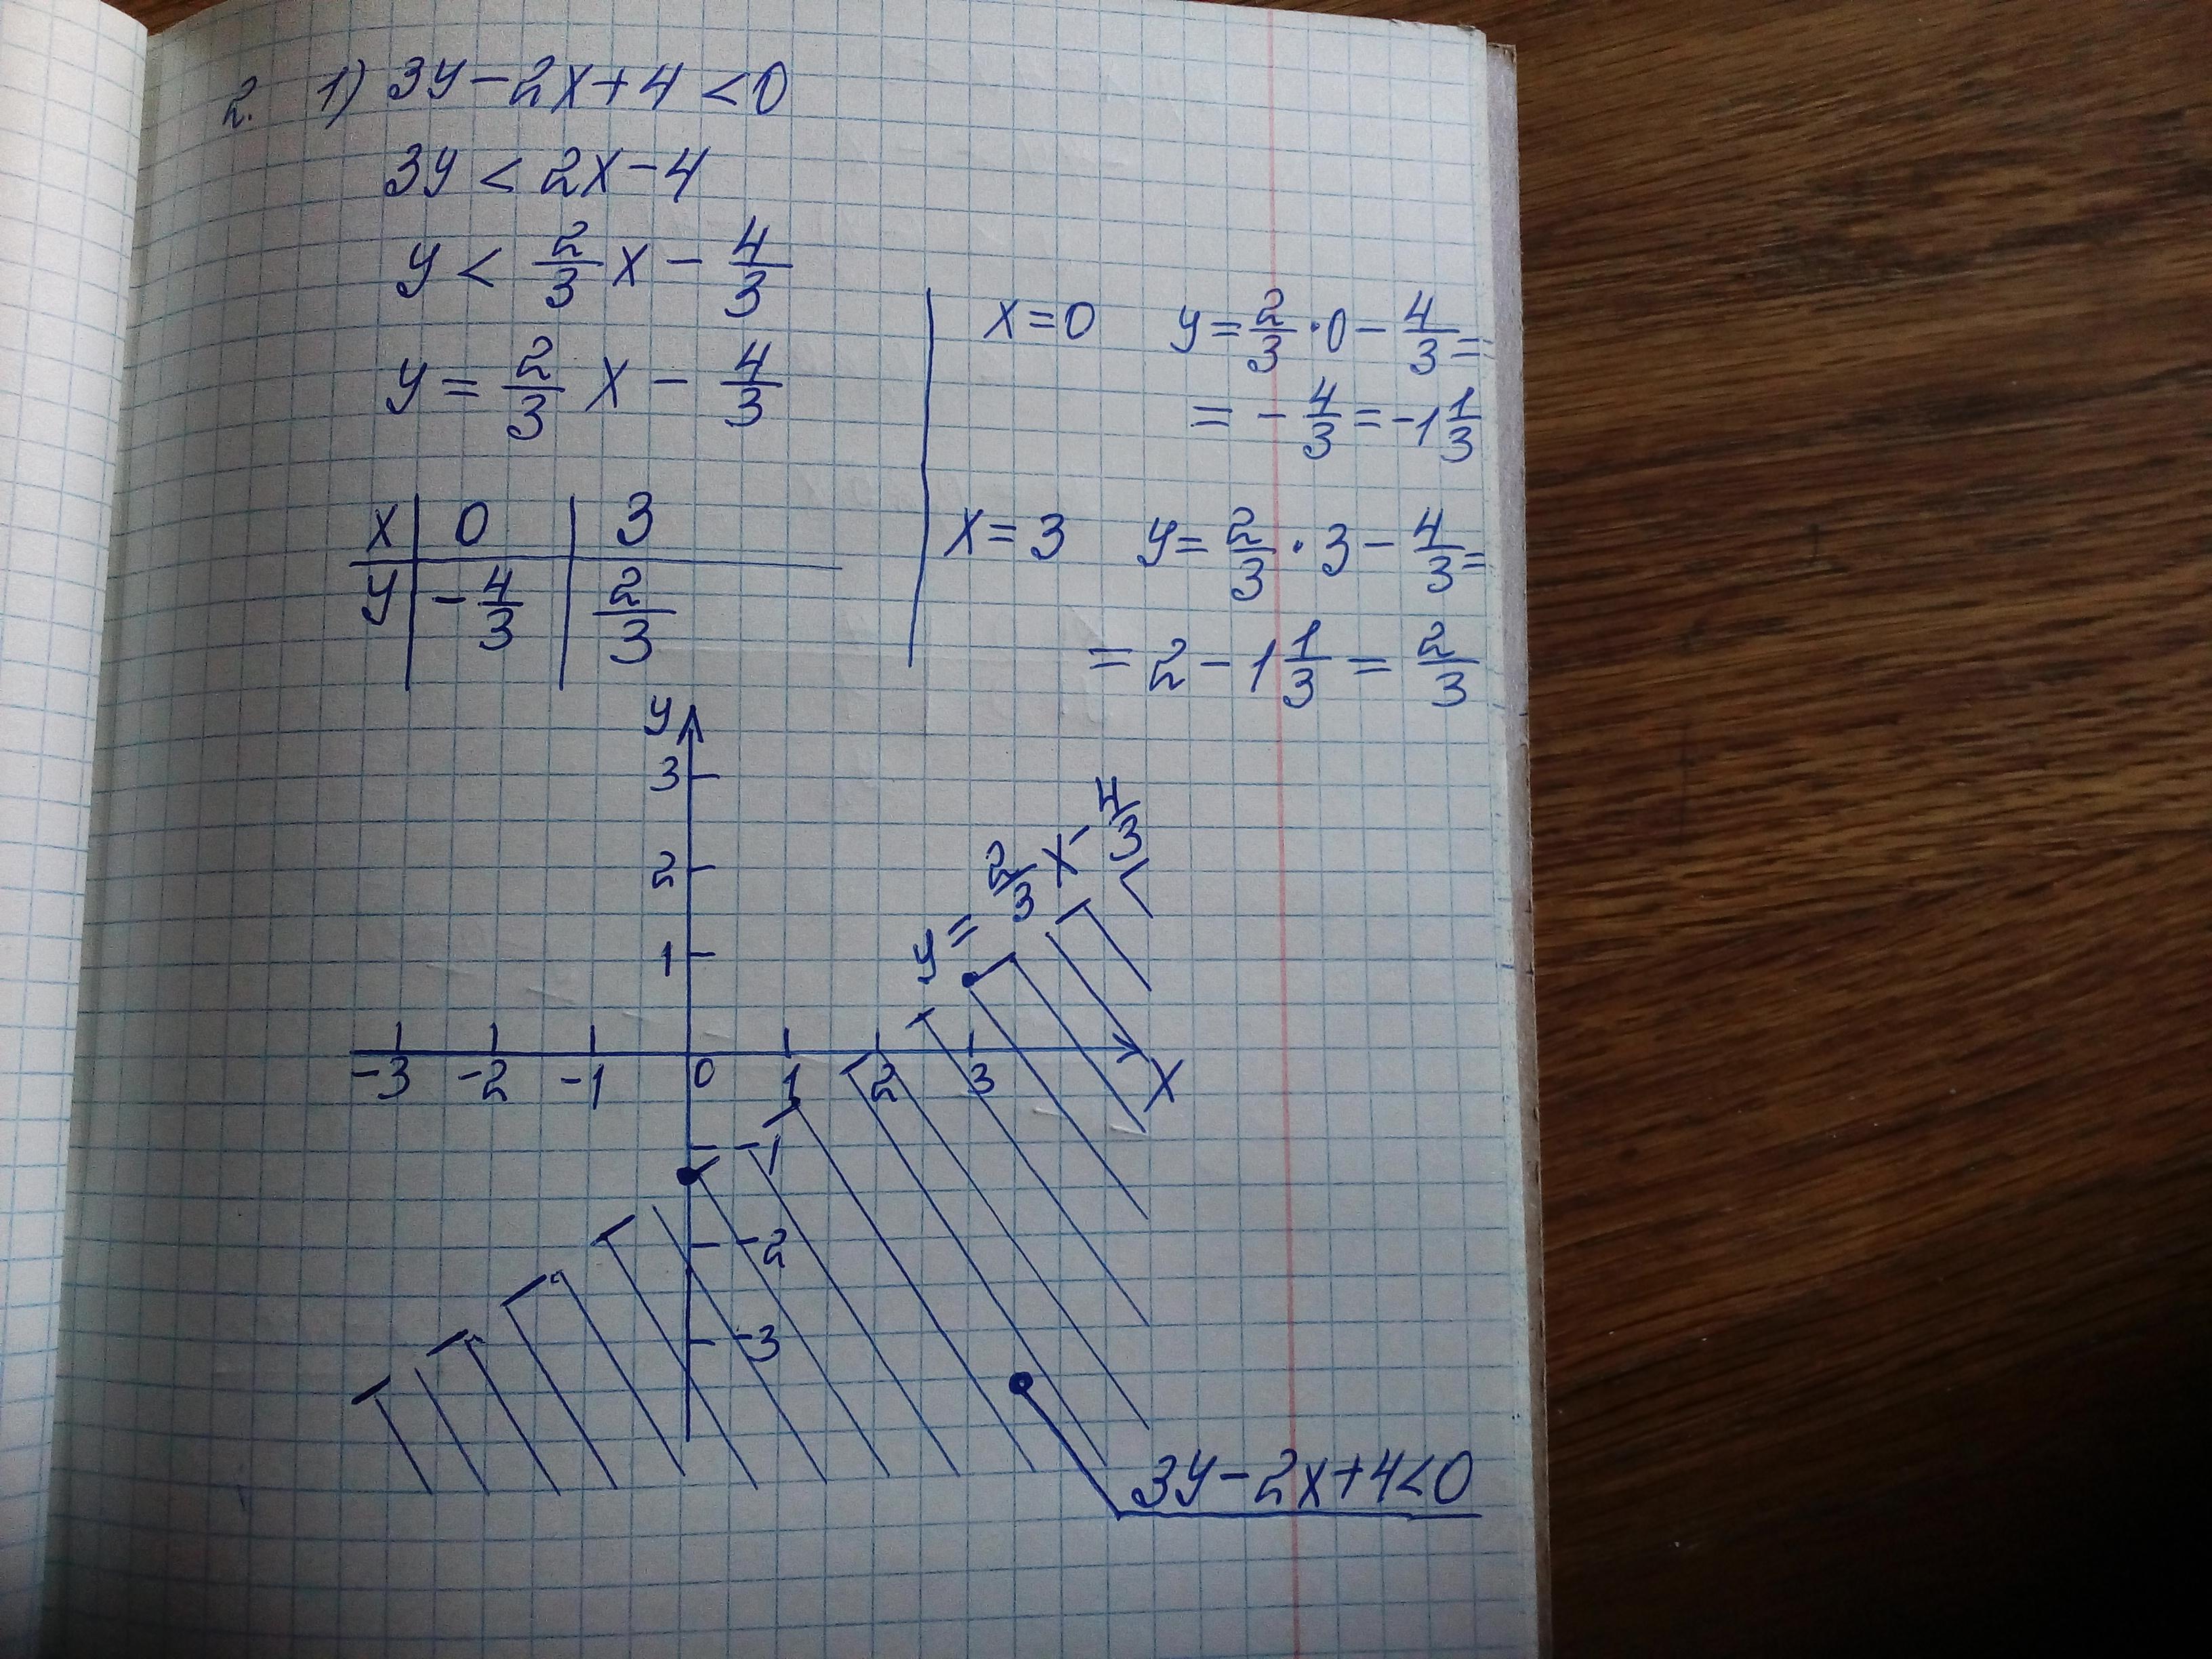 2. 1) 3y-2x+4<0
3y < 2x-4
y < 2/3 x - 4/3
y = 2/3 x - 4/3
x | 0 | 3
y | -4/3 | 2/3
x=0 y=2/3·0-4/3=
= -4/3=-1 1/3
x=3 y=2/3·3-4/3=
= 2-1 1/3 = 2/3
y
3
2
1
y = 2/3 x - 4/3
-3 -2 -1 0 1 2 3 x
-1
-2
-3
3y-2x+4<0